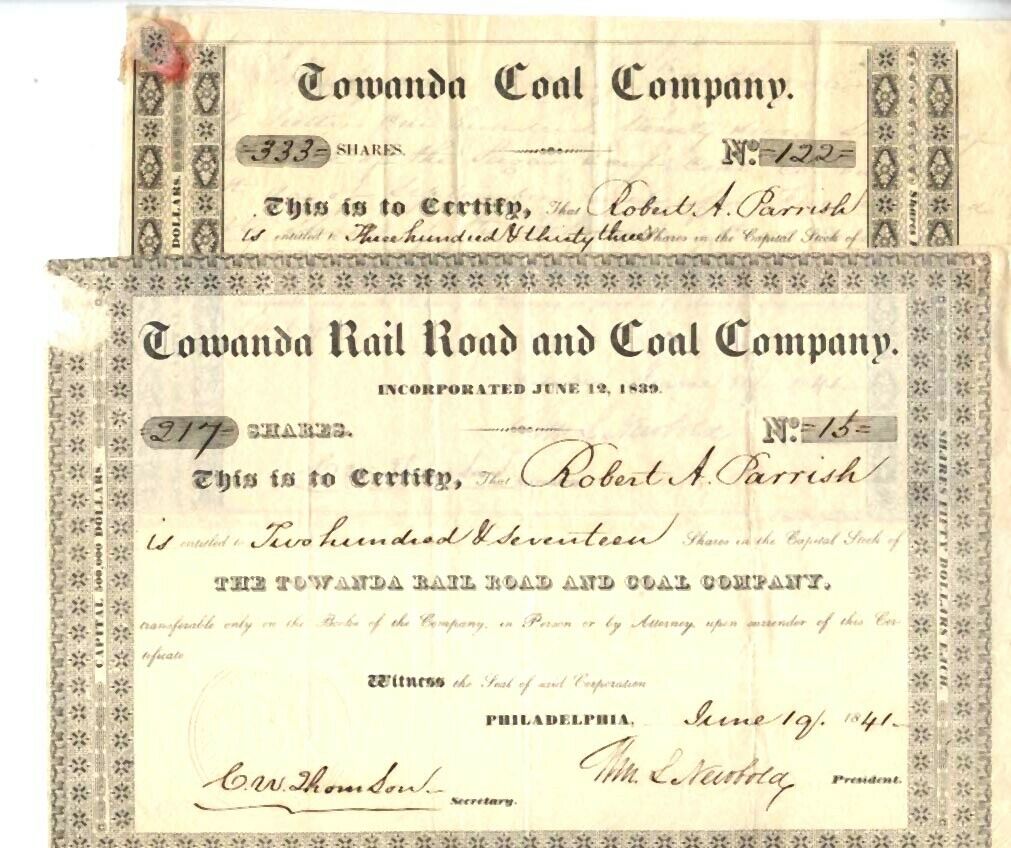 Towanda Coal Company.
=333= SHARES. No. =122=
This is to Certify, That Robert A. Parrish
is entitled to Three hundred & thirty three Shares in the Capital Stock of
DOLLARS.
Towanda Rail Road and Coal Company.
INCORPORATED JUNE 12, 1839.
=217= SHARES. No. =15=
This is to Certify, That Robert A. Parrish
is entitled to Two hundred & seventeen Shares in the Capital Stock of
THE TOWANDA RAIL ROAD AND COAL COMPANY.
transferable only on the Books of the Company, in Person or by Attorney, upon surrender of this Cer-
tificate
Witness the Seal of said Corporation
PHILADELPHIA, June 19 1841
C. W. Thomson Secretary. Wm L Newbold President.
CAPITAL 500,000 DOLLARS.
SHARES FIFTY DOLLARS EACH.